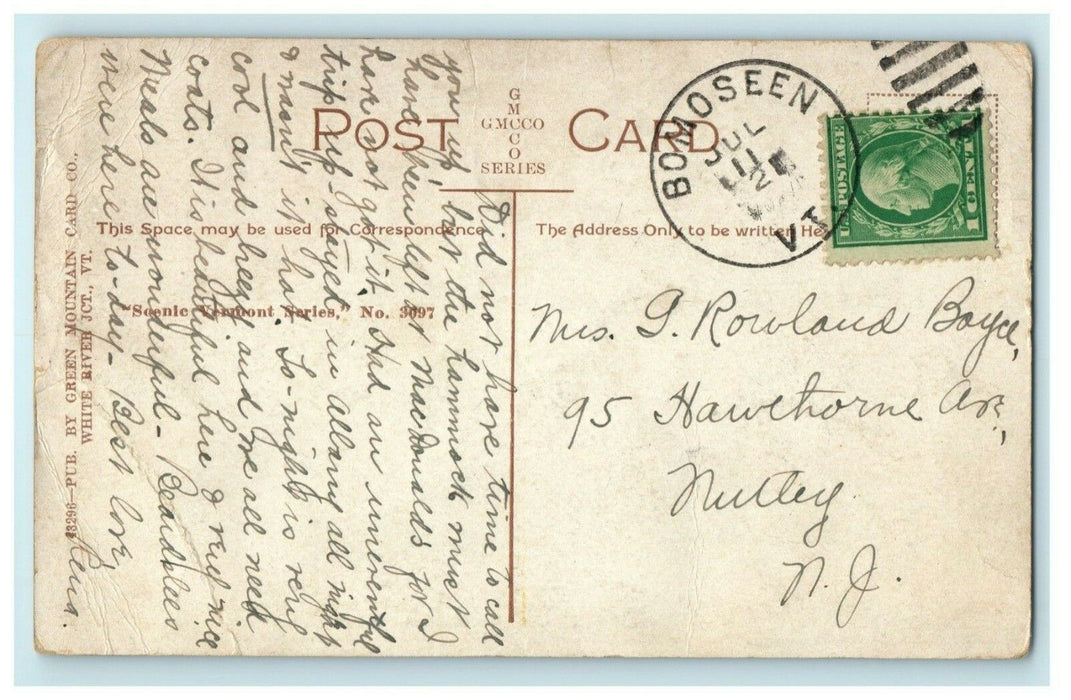 POST CARD
G
M
GMCCO
C
O
SERIES
This Space may be used for Correspondence
The Address Only to be written Here
"Scenic Vermont Series," No. 3697
43296—PUB. BY GREEN MOUNTAIN CARD CO.,
WHITE RIVER JCT., VT.
BOMOSEEN
JUL
11
VT.
U.S. POSTAGE
1 CENT
Did not have time to call
you up but the hammock must
have been left at MacDonalds for I
have not got it. Had an uneventful
trip up - stayed in Albany all night
& wasn't it hot. To-night is very
cool and breezy and we all need
coats. It is beautiful here & very nice
Meals are wonderful - Beardslees
were here to-day - Best love,
Mrs. G. Rowland Boyce,
95 Hawthorne Ave,
Nutley
N. J.